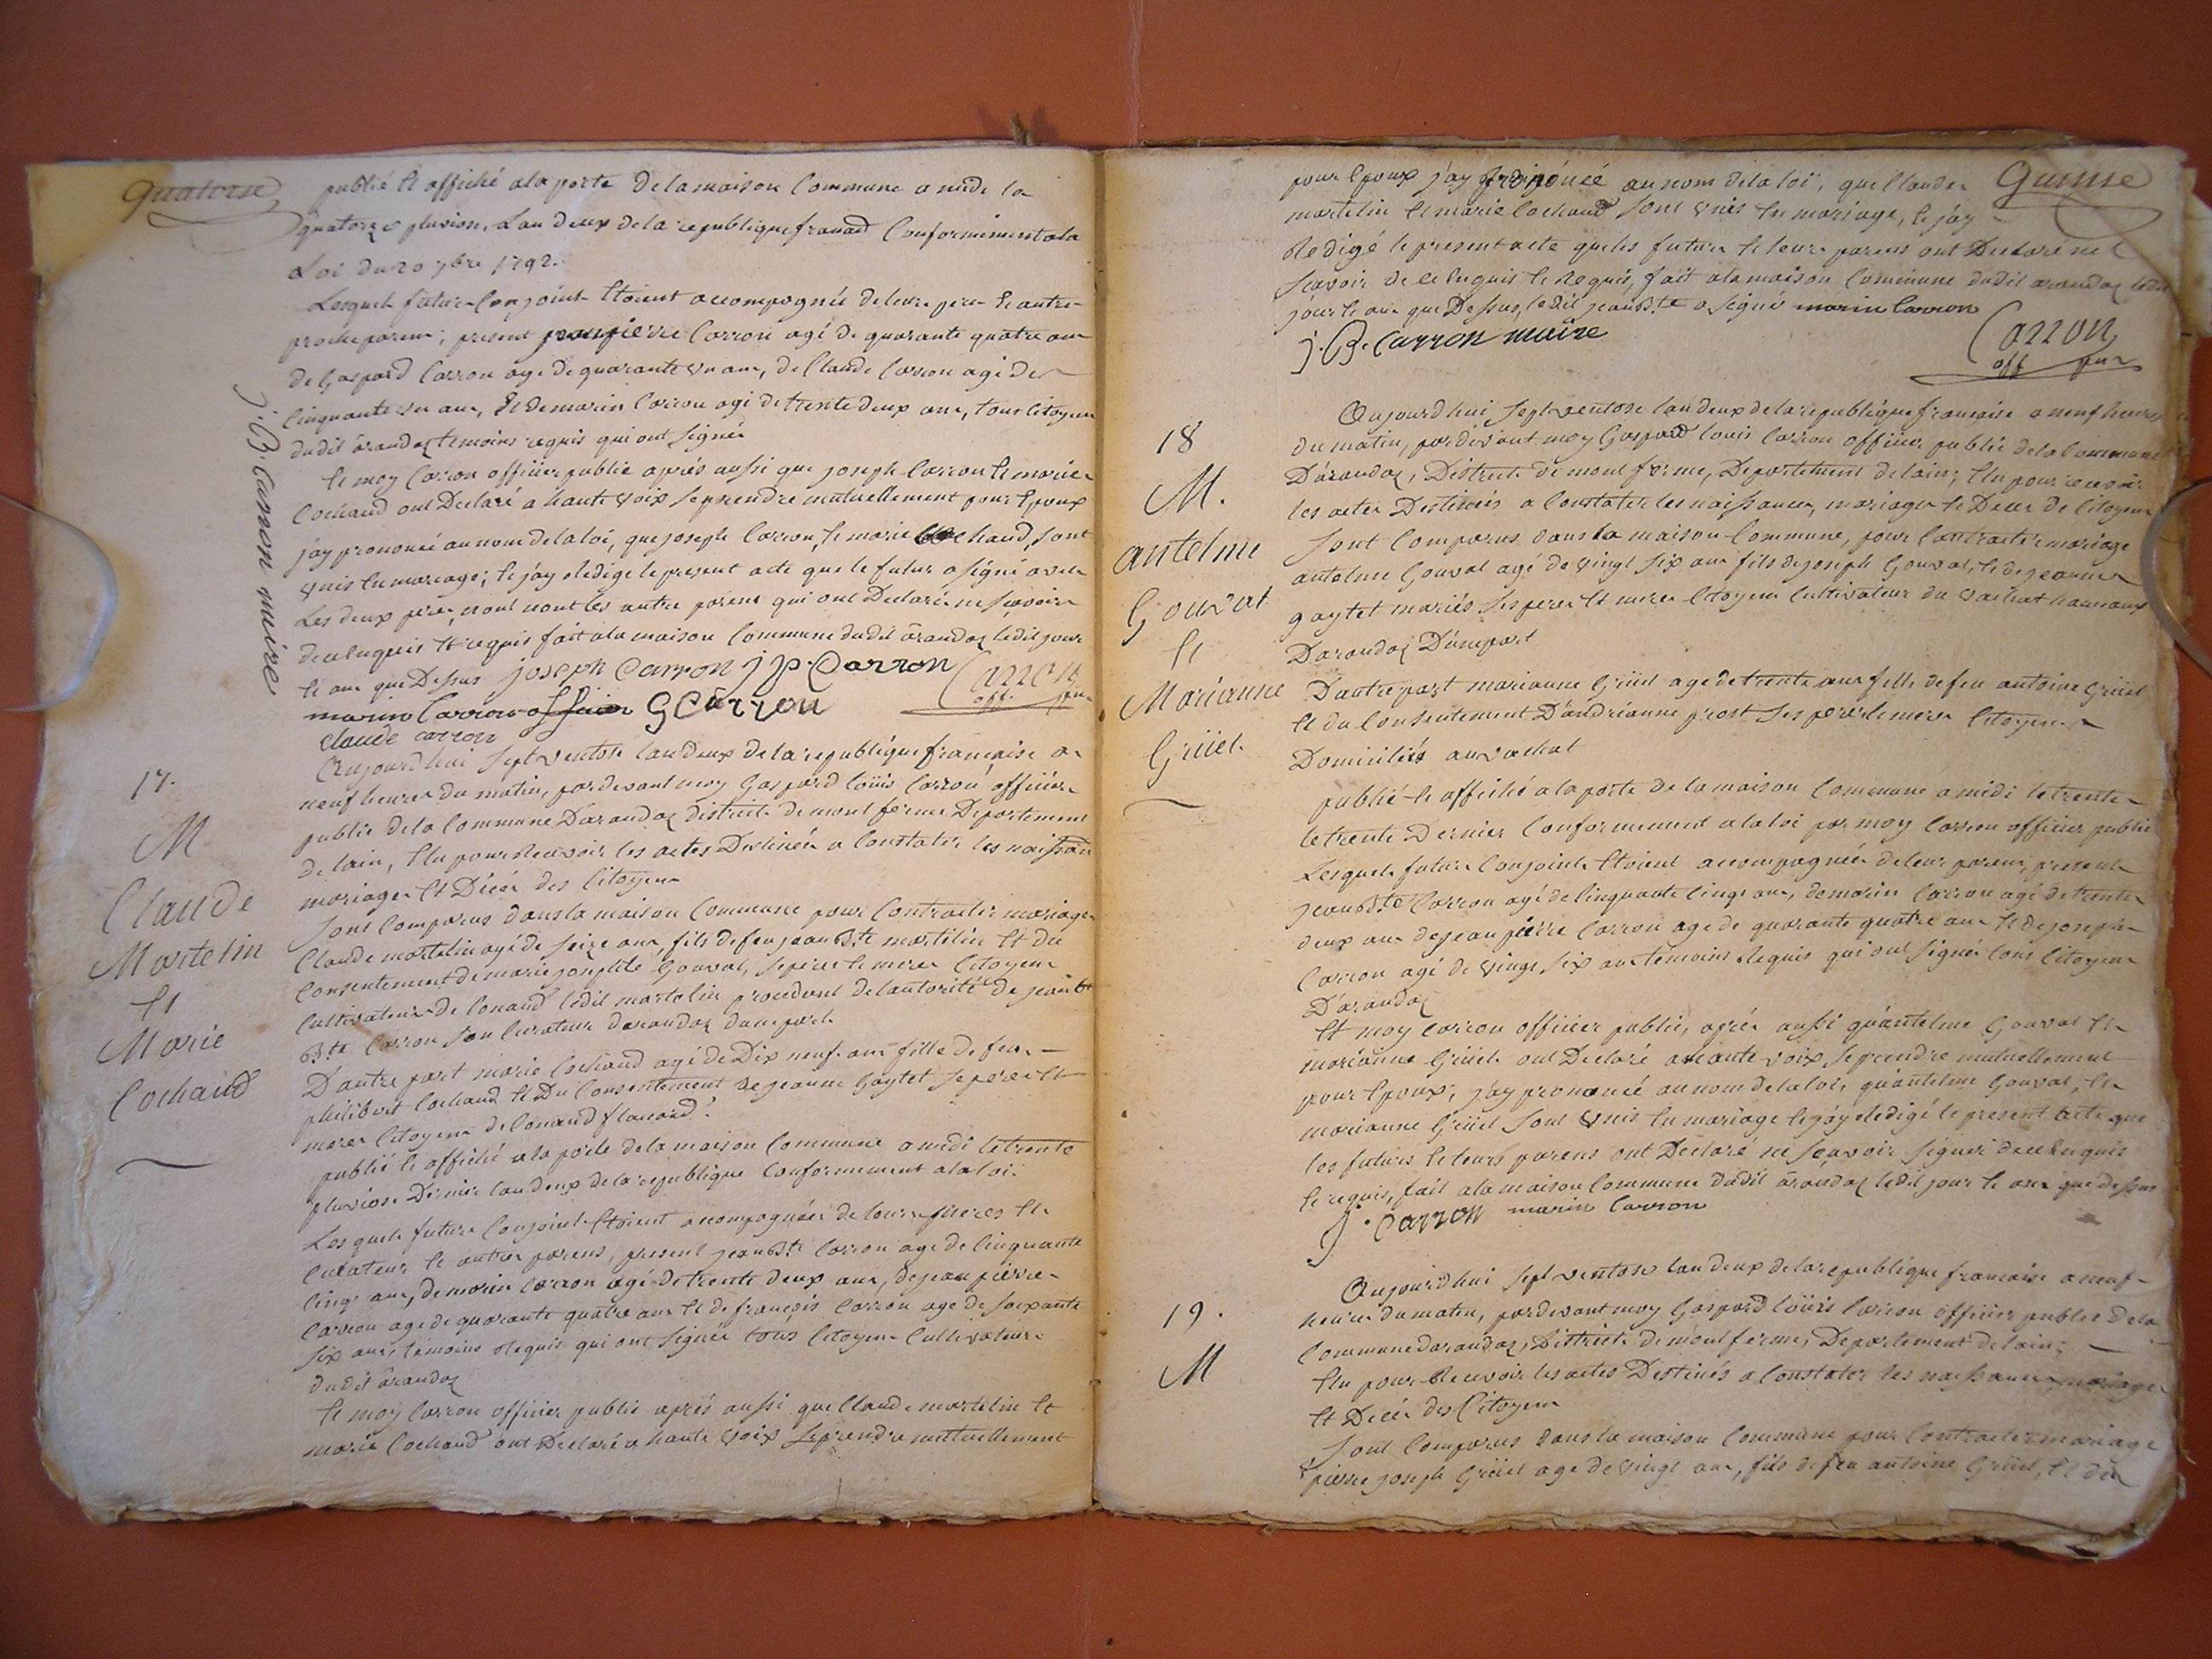 quatorse
publié et affiché a la porte de la maison Commune a midi la
quatorze pluviose, L'an deux de la republique Conformement a la
Loi du 20 7bre 1792.
Lesquels futurs Conjoint Etoient accompagnés de leurs pere et autre
proche parens; present jean pierre Carron agé de quarante quatre ans
de Gaspard Carron age de quarante un ans, de Claude Carron agé de
Cinquante un ans, Et de marin Carron agé de trente deux ans, tous Citoyens
dudit arandaz temoins requis qui ont signés
Et moy Carron officier public aprés aussi que joseph Carron et marie
Cochand ont Declaré a haute voix se prendre mutuellement pour Epoux
j'ay prononcé au nom de la loi, que joseph Carron, et marie Cochand, sont
unis En mariage; et j'ay Redigé le present acte que le futur a signé avec
Les deux pere, nont les autre parens qui ont Declaré ne scavoir
de ce Enquis et requis fait a la maison Commune dudit arandaz ledit jour
et an que Dessus joseph Carron j p. Carron Carron
off. pu
marin Carron G Carron
claude carron
J. B Carron maire
17.
M
Claude
Martelin
et
Marie
Cochand
Aujourdhui sept ventose lan deux de la republique française a
neuf heures du matin, pardevant moy Gaspard louis Carron officier
public de la Commune Darandaz district de mont ferme Departement
de lain, Elu pour Recevoir les actes Destinés a Constater les naissan
mariages Et Décés des Citoyens
Sont Comparus dans la maison Commune pour Contracter mariage
Claude martelin agé de seize ans, fils de feu jean Bte martelin Et du
Consentement de marie josephte Gouvat, se peres et meres Citoyens
Cultivateurs de Conand ledit martelin procedant de lautorité de jean
Bte Carron son Curateur darandaz dune part
D'autre part marie Cochand agé de Dix neuf ans fille de feu
philibert Cochand Et Du Consentement de jeanne Gaytet se peres Et
meres Citoyens de Conand
publié et affiché a la porte de la maison Commune a midi le trente
pluviose Dernier lan deux de la republique Conformement a la loi.
Lesquels futurs Conjoint Etoient acompagnés de leurs meres Et
Curateur et autres parens, present jean Bte Carron age de Cinquante
Cinq ans, de marin Carron agé de trente deux ans, de jean pierre
Carron age de quarante quatre ans Et de françois Carron age de soixante
six ans, temoins Requis qui ont signés tous Citoyens Cultivateurs
dudit arandaz
Et moy Carron officier public aprés aussi que Claude martelin Et
marie Cochand ont Declaré a haute voix se prendre mutuellement
Quinse
pour Epoux j'ay prononcé au nom de la loi, que Claude
martelin Et marie Cochand sont unis En mariage, Et j'ay
Redigé le present acte que les futurs Et leurs parens ont Declaré ne
scavoir de ce Enquis Et Requis, fait a la maison Commune dudit arandaz ledit
jour et an que Dessus, ledit jean Bte a signé marin Carron
j. B. Carron maire Carron
off pu
18
M.
antelme
Gouvat
et
Marianne
Grüel
Aujourd hui sept ventose lan deux de la republique francaise a neuf heures
du matin, pardevant moy Gaspard louis Carron officier public de la Commune
Darandaz, District de mont ferme, Departement de lain; Elu pour recevoir
les actes Destinés a Constater les naissances, mariages Et Deces de Citoyens
Sont Comparus dans la maison Commune, pour Contracter mariage
antelme Gouvat agé de vingt six ans fils de joseph Gouvat, et de jeanne
gaytet mariés ses peres Et meres Citoyens Cultivateurs du vachat hameaux
Darandaz D'une part
D'autre part marianne Grüel age de trente ans fille de feu antoine Grüel
Et du Consentement D'andrianne prost ses peres et meres Citoyens
Domiciliés au vachat
publié et affiché a la porte de la maison Commune a midi le trente
le trente Dernier Conformement a la loi par moy Carron officier public
Lesquels futurs Conjoint Etoient acompagnés de leur parens, present
jean Bte Carron agé de Cinquante Cinq ans, de marin Carron agé de trente
deux ans de jean pierre Carron age de quarante quatre ans Et de joseph
Carron agé de vingt six ans temoins Requis qui ont signés tous Citoyens
D'arandaz
Et moy Carron officier public, aprés aussi qu'antelme Gouvat Et
marianne Grüel ont Declaré a haute voix, se prendre mutuellement
pour Epoux, j'ay prononcé au nom de la loi, qu'antelme Gouvat, Et
marianne Grüel sont unis En mariage Et j'ay Redigé le present acte que
les futurs Et leurs parens ont Declaré ne scavoir signer de ce Enquis
Et requis, fait a la maison Commune dudit arandaz ledit jour Et an que dessus
j. Carron marin Carron
19.
M
Aujourd'hui sept ventose lan deux de la republique francaise a neuf
heures du matin, pardevant moy Gaspard louis Carron officier public de la
Commune darandaz, District de mont ferme, Departement de lain;
Elu pour Recevoir les actes Destinés a Constater les naissances, mariages
Et Décés des Citoyens
Sont Comparus dans la maison Commune pour Contracter mariage
pierre joseph Grüel age de vingt ans, fils de feu antoine Grüel, Et du